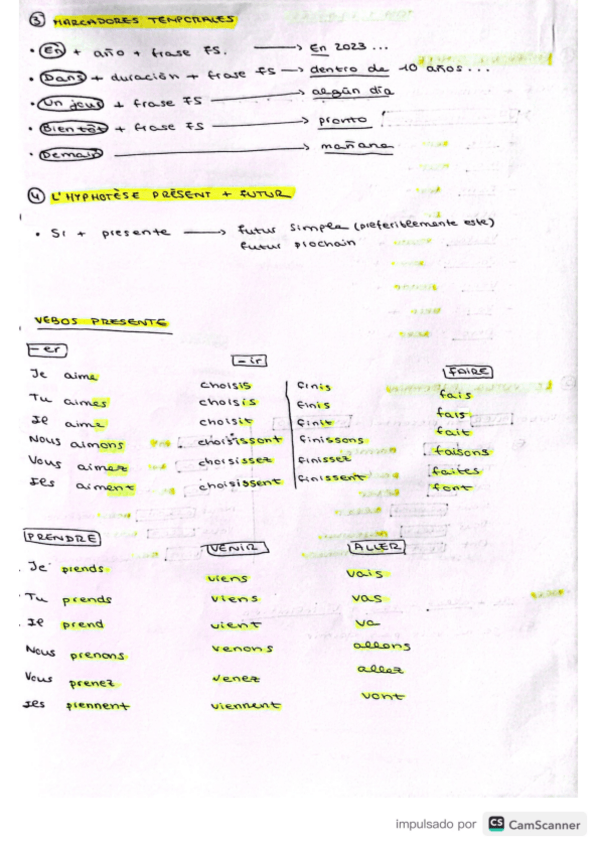 ③ MARCADORES TEMPORALES
• En + año + frase FS. → En 2023 ...
• Dans + duración + frase FS → dentro de 10 años ...
• Un jour + frase FS → algún día
• Bientôt + frase FS → pronto
• Demain → mañana
④ L'HYPHOTÈSE PRÉSENT + FUTUR
• Si + presente → futur simple (preferiblemente este)
futur prochain
VEBOS PRESENTE
-er -ir FAIRE
Je aime choisis finis fais
Tu aimes choisis finis fais
Il aime choisit finit fait
Nous aimons choisissont finissons faisons
Vous aimez choisissez finissez faites
Iles aiment choisissent finissent font
PRENDRE VENIR ALLER
Je prends viens vais
Tu prends viens vas
Il prend vient va
Nous prenons venons allons
Vous prenez venez allez
Iles prennent viennent vont
impulsado por CS CamScanner